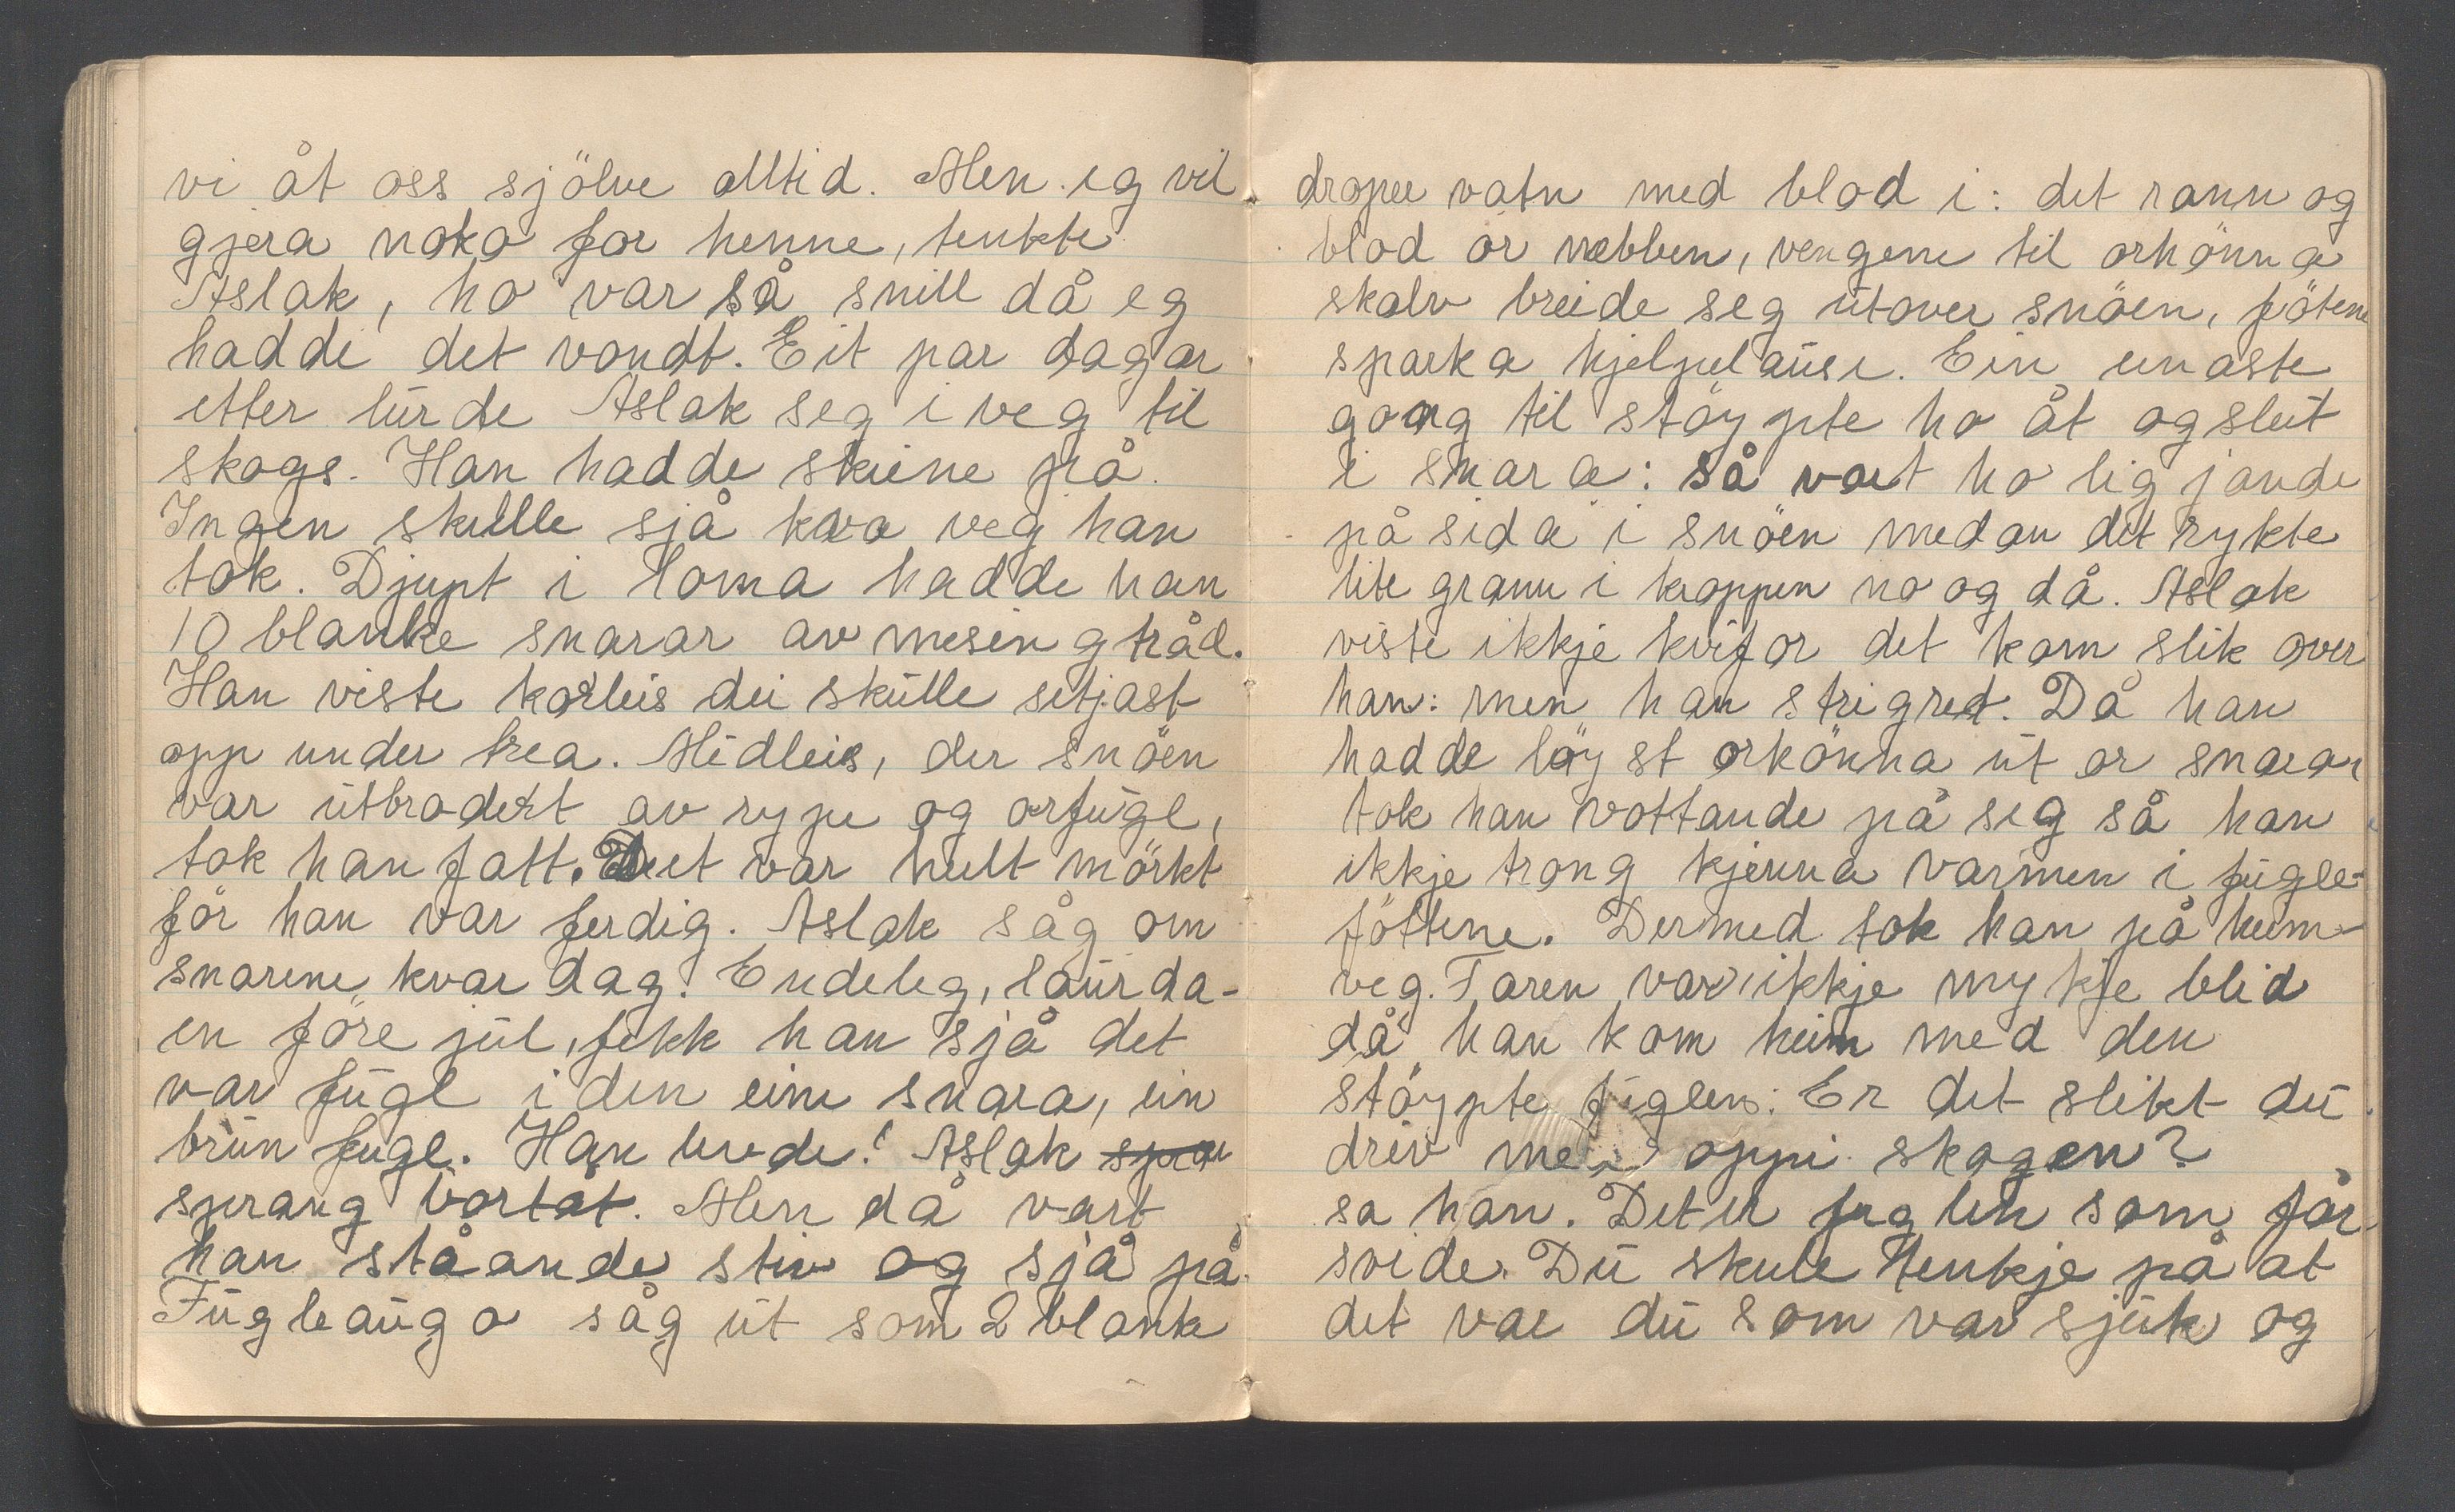 vi åt oss sjölve alltid. Men eg vil
gjera noko for henne, tenkte
Aslak, ho var så snill då eg
hadde det vondt. Eit par dagar
etter lurde Aslak seg i veg til
skogs. Han hadde skiene på.
Ingen skulle sjå kva veg han
tok. Djupt i loma hadde han
10 blanke snarar av mesingtråd.
Han viste korleis dei skulle setjast
opp under trea. Midleis, der snöen
var utbrodert av rype og orfugl,
tok han fatt. Det var heilt mörkt
för han var ferdig. Aslak såg om
snarene kvar dag. Endeleg, laurda-
en före jul, fekk han sjå det
var fugl i den eine snara, ein
brun fugl. Han levde! Aslak spra
sprang bortåt. Men då vart
han ståande stiv og sjå på.
Fugleaugo såg ut som 2 blank
dropee vatn med blod i: det rann og
blod or nebben, vengene til orhönna
skalv breide seg utover snöen, fötene
sparka hjelpelause. Ein einaste
gong til stöypte ho åt og sleit
i snara: så vart ho liggjande
på sida i snöen medan det rykte
lite grann i kroppen no og då. Aslak
viste ikkje kvifor det kom slik over
han: men han strigret. Då han
hadde löyst orhönna ut or snaran
tok han vottande på seg så han
ikkje trong kjenna varmen i fugle-
föttene. Dermed tok han på heim-
veg. Faren var ikkje mykje blid
då han kom heim med den
stöypte fuglen: Er det slikt du
driv med oppi skogen?
sa han. Det er fuglen som får
svide. Du skule tenkje på at
det var du som var sjuk og